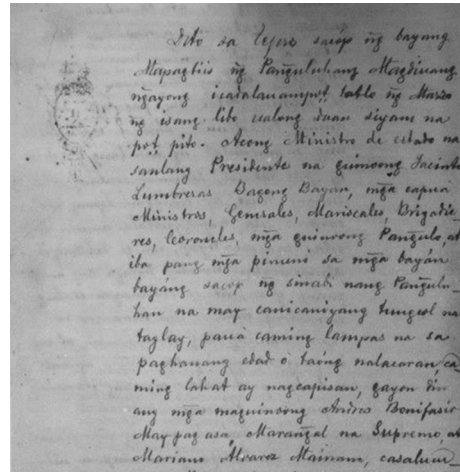 Dito sa Tejero sacóp ng̃ bayang
Mapagtiis ng̃ Pang̃uluhang Magdiwang
ng̃ayong icadalauampot tatlo ng̃ Marzo
ng̃ isang libo ualong daan siyam na
pót pito. Acong Ministro de estado na
sa guinoong Jacinto
Lumbreras Bagong Bayan, mg̃a capuá
Ministros, Generales, Mariscales, Brigadie-
res, Coroneles, mg̃a guinoong Pang̃ulo, at
iba pang mg̃a pinunò sa mg̃a bayán
bayáng sacóp ng̃ sinabi nang Pang̃ulu-
han na may canicaniyang tungcol na
taglay, pauà caming lampas na sa
edad ó taóng nalacaran, ca-
ming lahat ay nagcapisan, gayon din
ang mg̃a maguinoong Andres Bonifasio
May pag asa, na Supremo, at
Mariano Álvarez Mainam, casaluco-